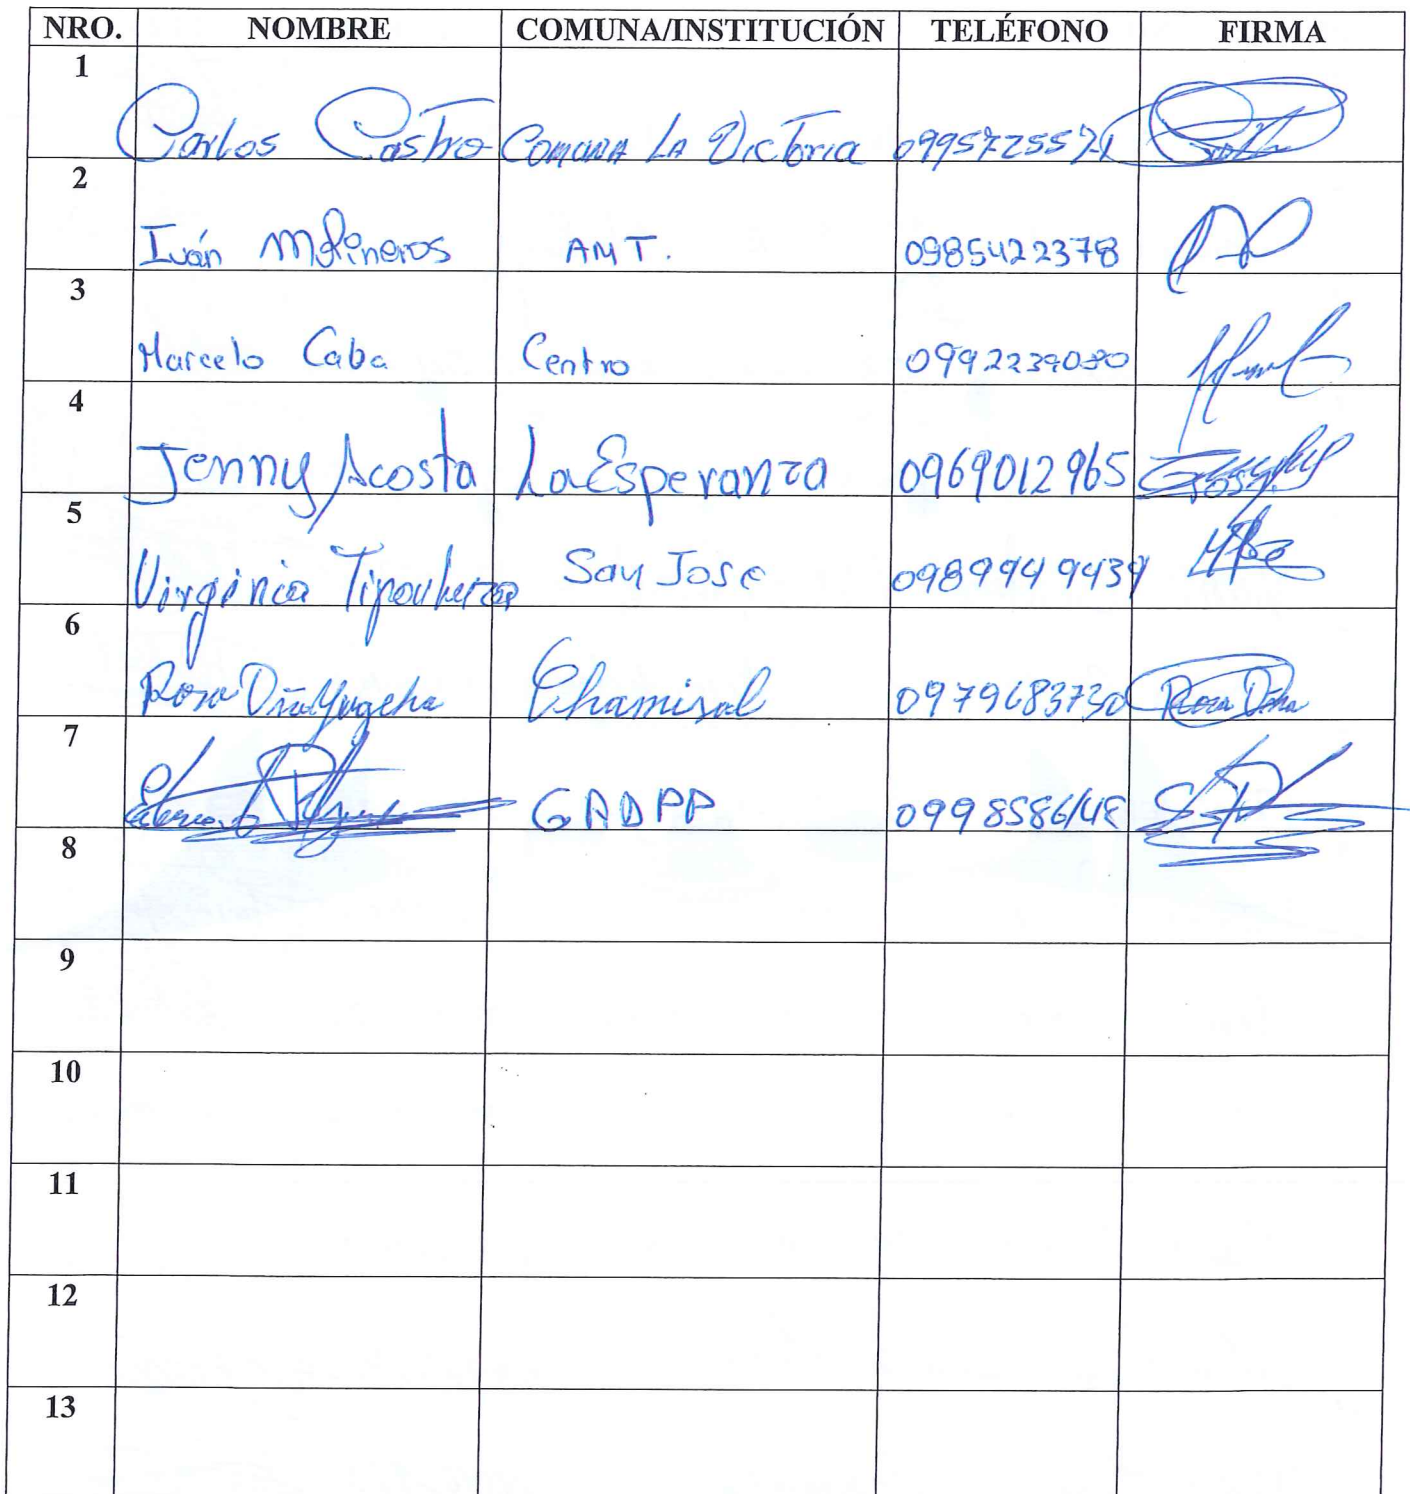 NRO. NOMBRE COMUNA/INSTITUCIÓN TELÉFONO FIRMA
1 Carlos Castro Comuna La Victoria 0995725571
2 Iván Molineros AMT. 0985422378
3 Marcelo Caba Centro
4 Jenny Acosta La Esperanza 0969012965
5 Virginia San Jose 0989949439
6 Rosa Chamisal 0979683730 Rosa
7 GADPP 0998586148
8
9
10
11
12
13